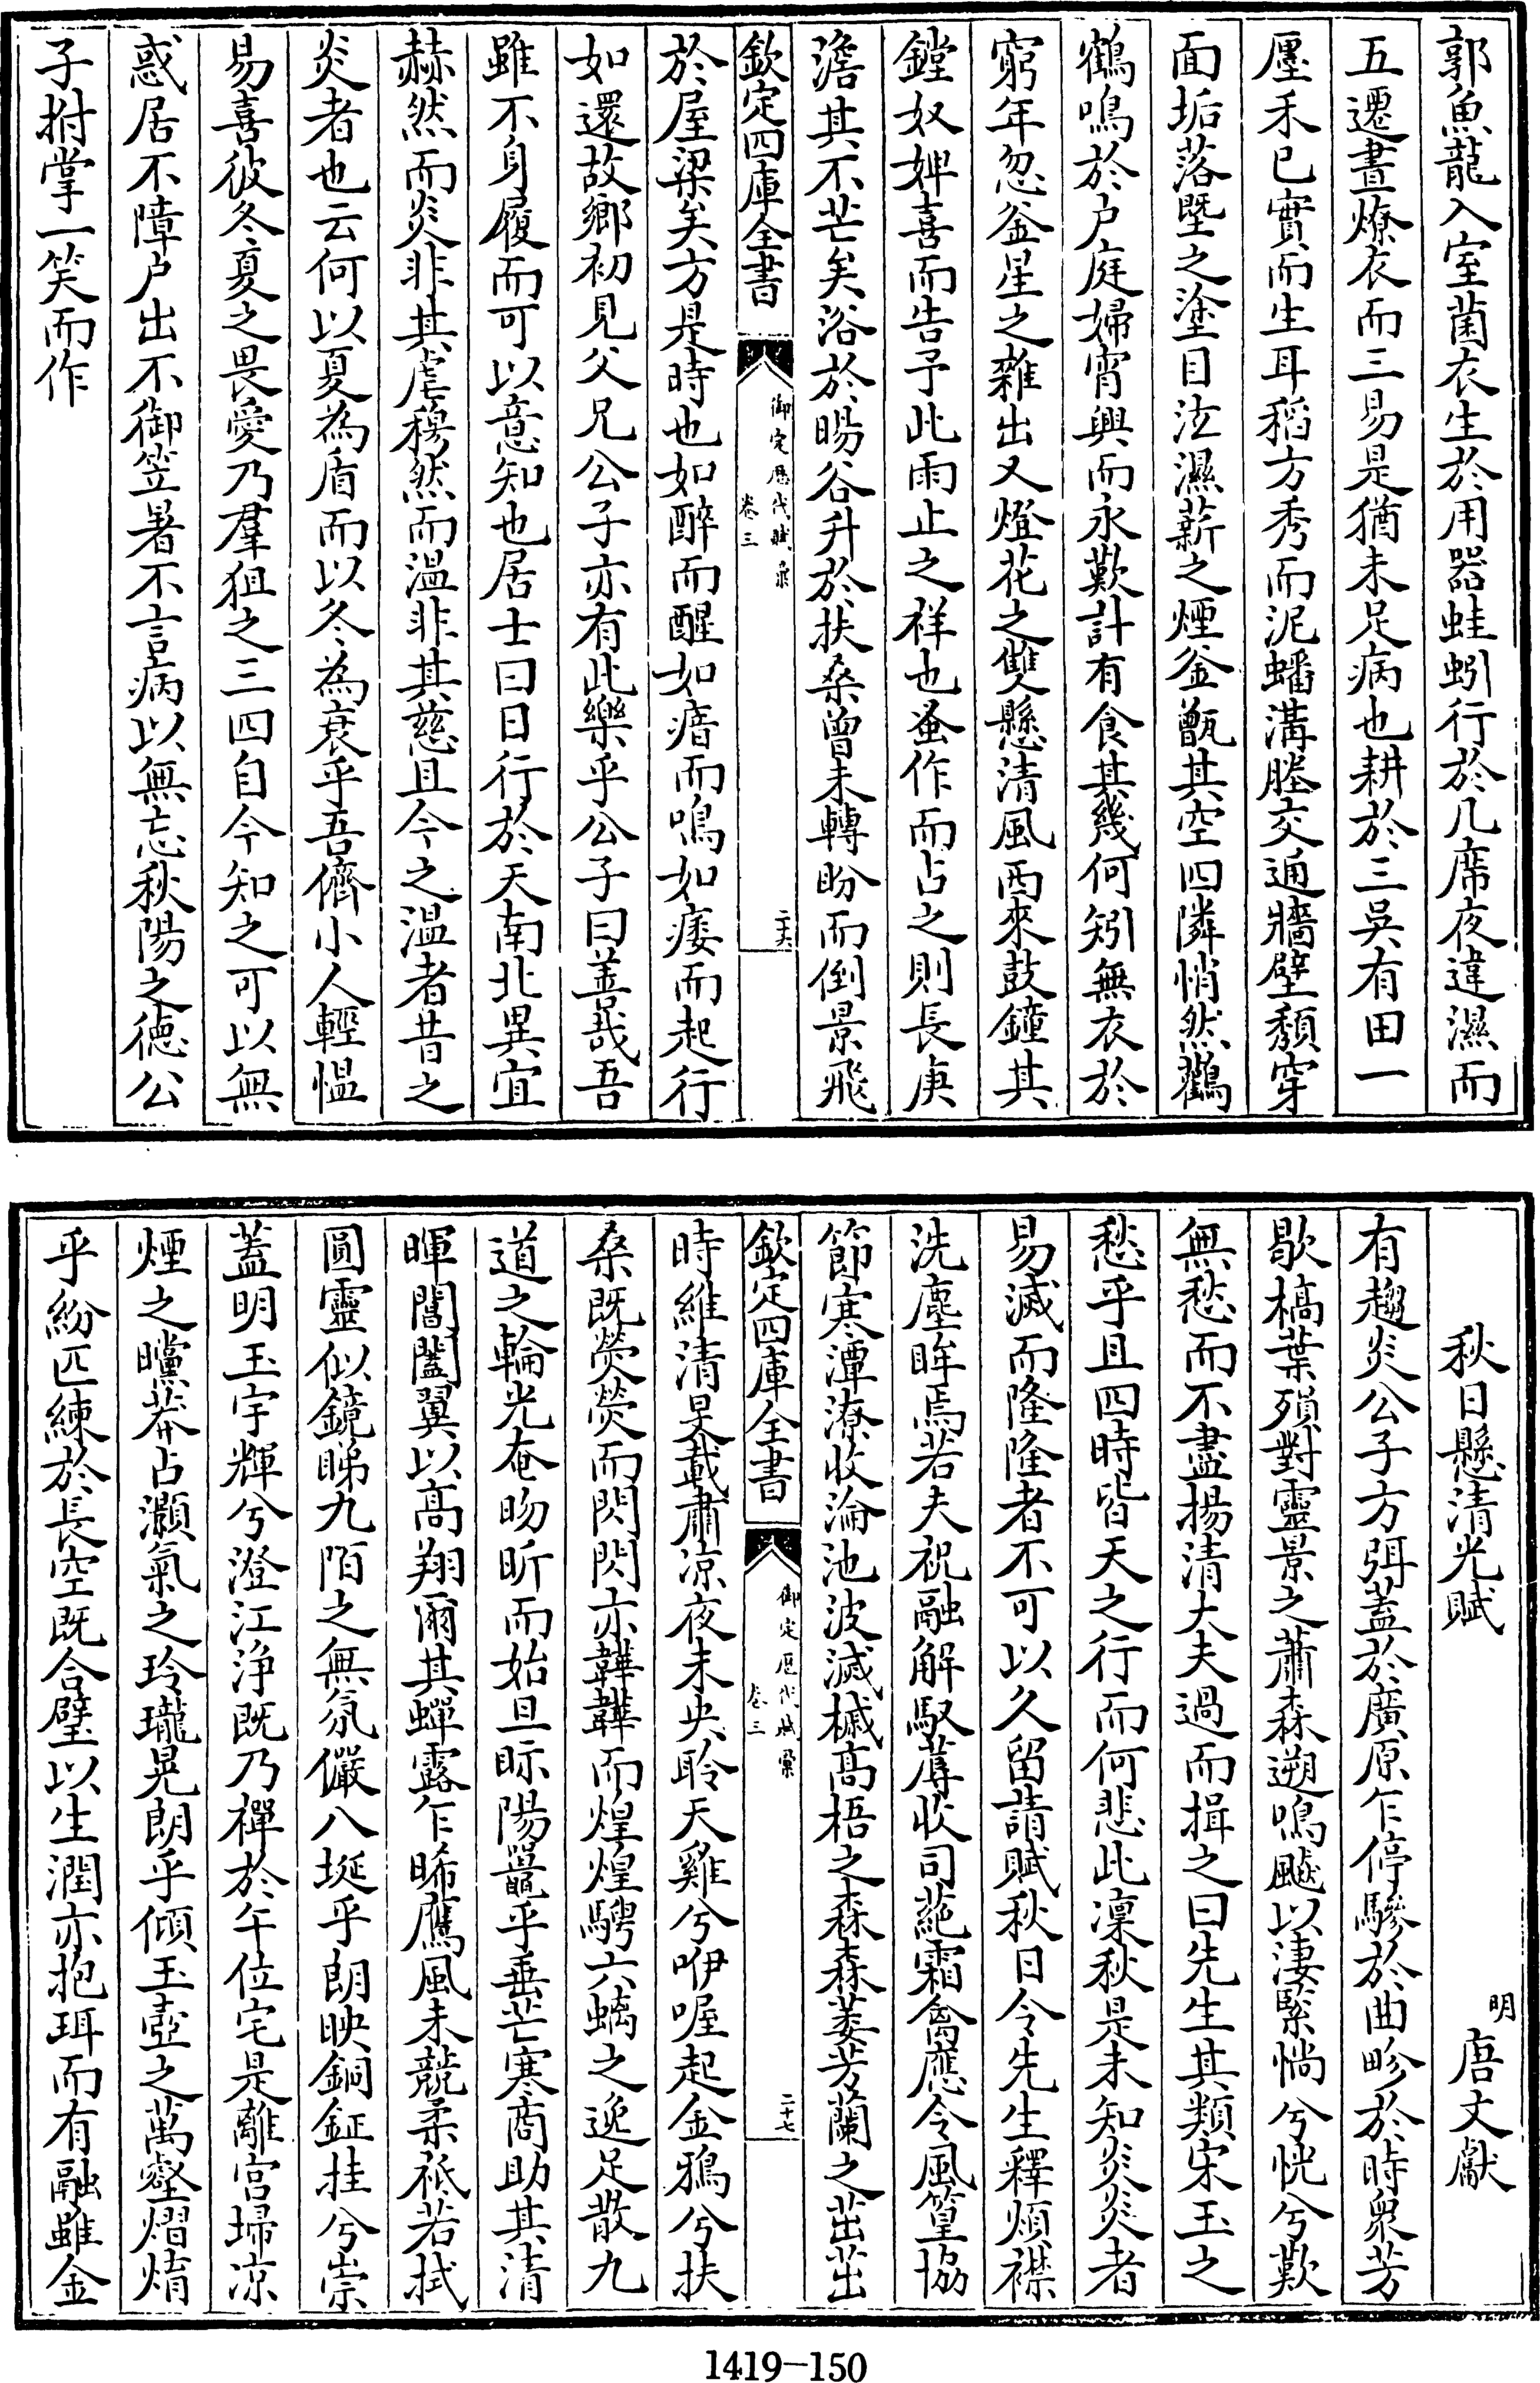 郭魚龍入室菌衣生於用器蛙蚓行於几席夜違濕而
五遷晝燎衣而三易是猶未足病也耕於三吳有田一
廛禾已實而生耳稻方秀而泥蟠溝塍交通牆壁頽穿
面垢落塈之塗目泣濕薪之煙釜甑其空四隣悄然鸛
鶴鳴於户庭婦宵興而永歎計有食其幾何矧無衣於
窮年忽釜星之雜出又燈花之雙懸清風西來鼓鐘其
鏜奴婢喜而告予此雨止之祥也蚤作而占之則長庚
澹其不芒矣浴於暘谷升於扶桑曾未轉盼而倒景飛
欽定四庫全書
御定歴代賦彙
卷三
二十六
於屋梁矣方是時也如醉而醒如瘖而鳴如痿而起行
如還故鄉初見父兄公子亦有此樂乎公子曰善哉吾
雖不身履而可以意知也居士曰日行於天南北異宜
赫然而炎非其虐穆然而温非其慈且今之温者昔之
炎者也云何以夏為盾而以冬為衰乎吾儕小人輕愠
易喜彼冬夏之畏愛乃羣狙之三四自今知之可以無
惑居不障户出不御笠暑不言病以無忘秋陽之德公
子拊掌一笑而作
秋日懸清光賦
明
唐文獻
有趨炎公子方弭蓋於廣原乍停驂於曲畛於時衆芳
歇槁葉殞對靈景之蕭森遡鳴飈以淒緊惝兮怳兮歎
無愁而不盡揚清大夫過而揖之曰先生其類宋玉之
愁乎且四時皆天之行而何悲此凜秋是未知炎炎者
易滅而隆隆者不可以久留請賦秋日令先生釋煩襟
洗塵眸焉若夫祝融解馭蓐收司蒞霜禽應令風篁協
節寒潭潦收淪池波滅槭高梧之森森萎芳蘭之茁茁
欽定四庫全書
御定歴代賦彙
卷三
二十七
時維清旻載肅凉夜未央聆天雞兮咿喔起金鴉兮扶
桑既熒熒而閃閃亦韡韡而煌煌騁六螭之逸足散九
道之輪光奄昒昕而始旦眎陽㬎乎垂芒寒商助其清
暉閶闔翼以高翔爾其蟬露乍晞鷹風未競柔祗若拭
圓靈似鏡睇九陌之無氛儼八埏乎朗映銅鉦挂兮崇
蓋明玉宇輝兮澄江浄既乃禪於午位宅是離宮埽凉
煙之曭莽占灝氣之玲瓏晃朗乎傾玉壺之萬壑熠煟
乎紛匹練於長空既合璧以生潤亦抱珥而有融雖金
1419-150